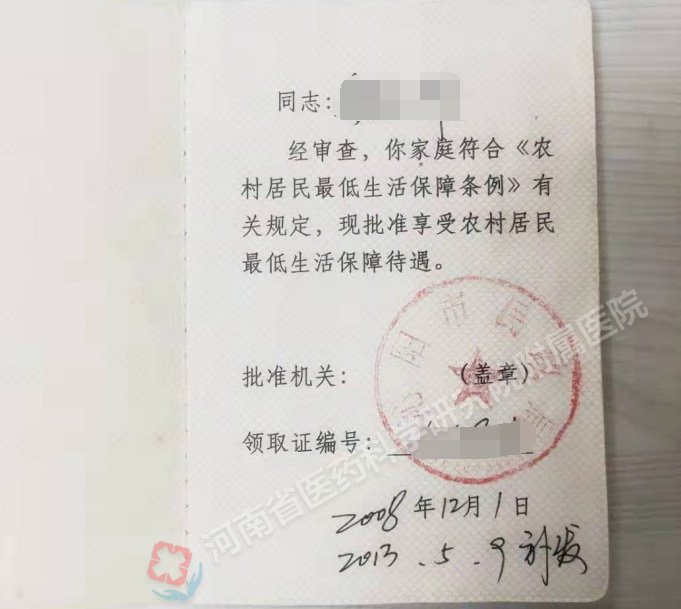 同志：
经审查，你家庭符合《农
村居民最低生活保障条例》有
关规定，现批准享受农村居民
最低生活保障待遇。
批准机关：
（盖章）
领取证编号：
2008年12月1日
2013.5.9 补发
河南省医药科学研究院附属医院